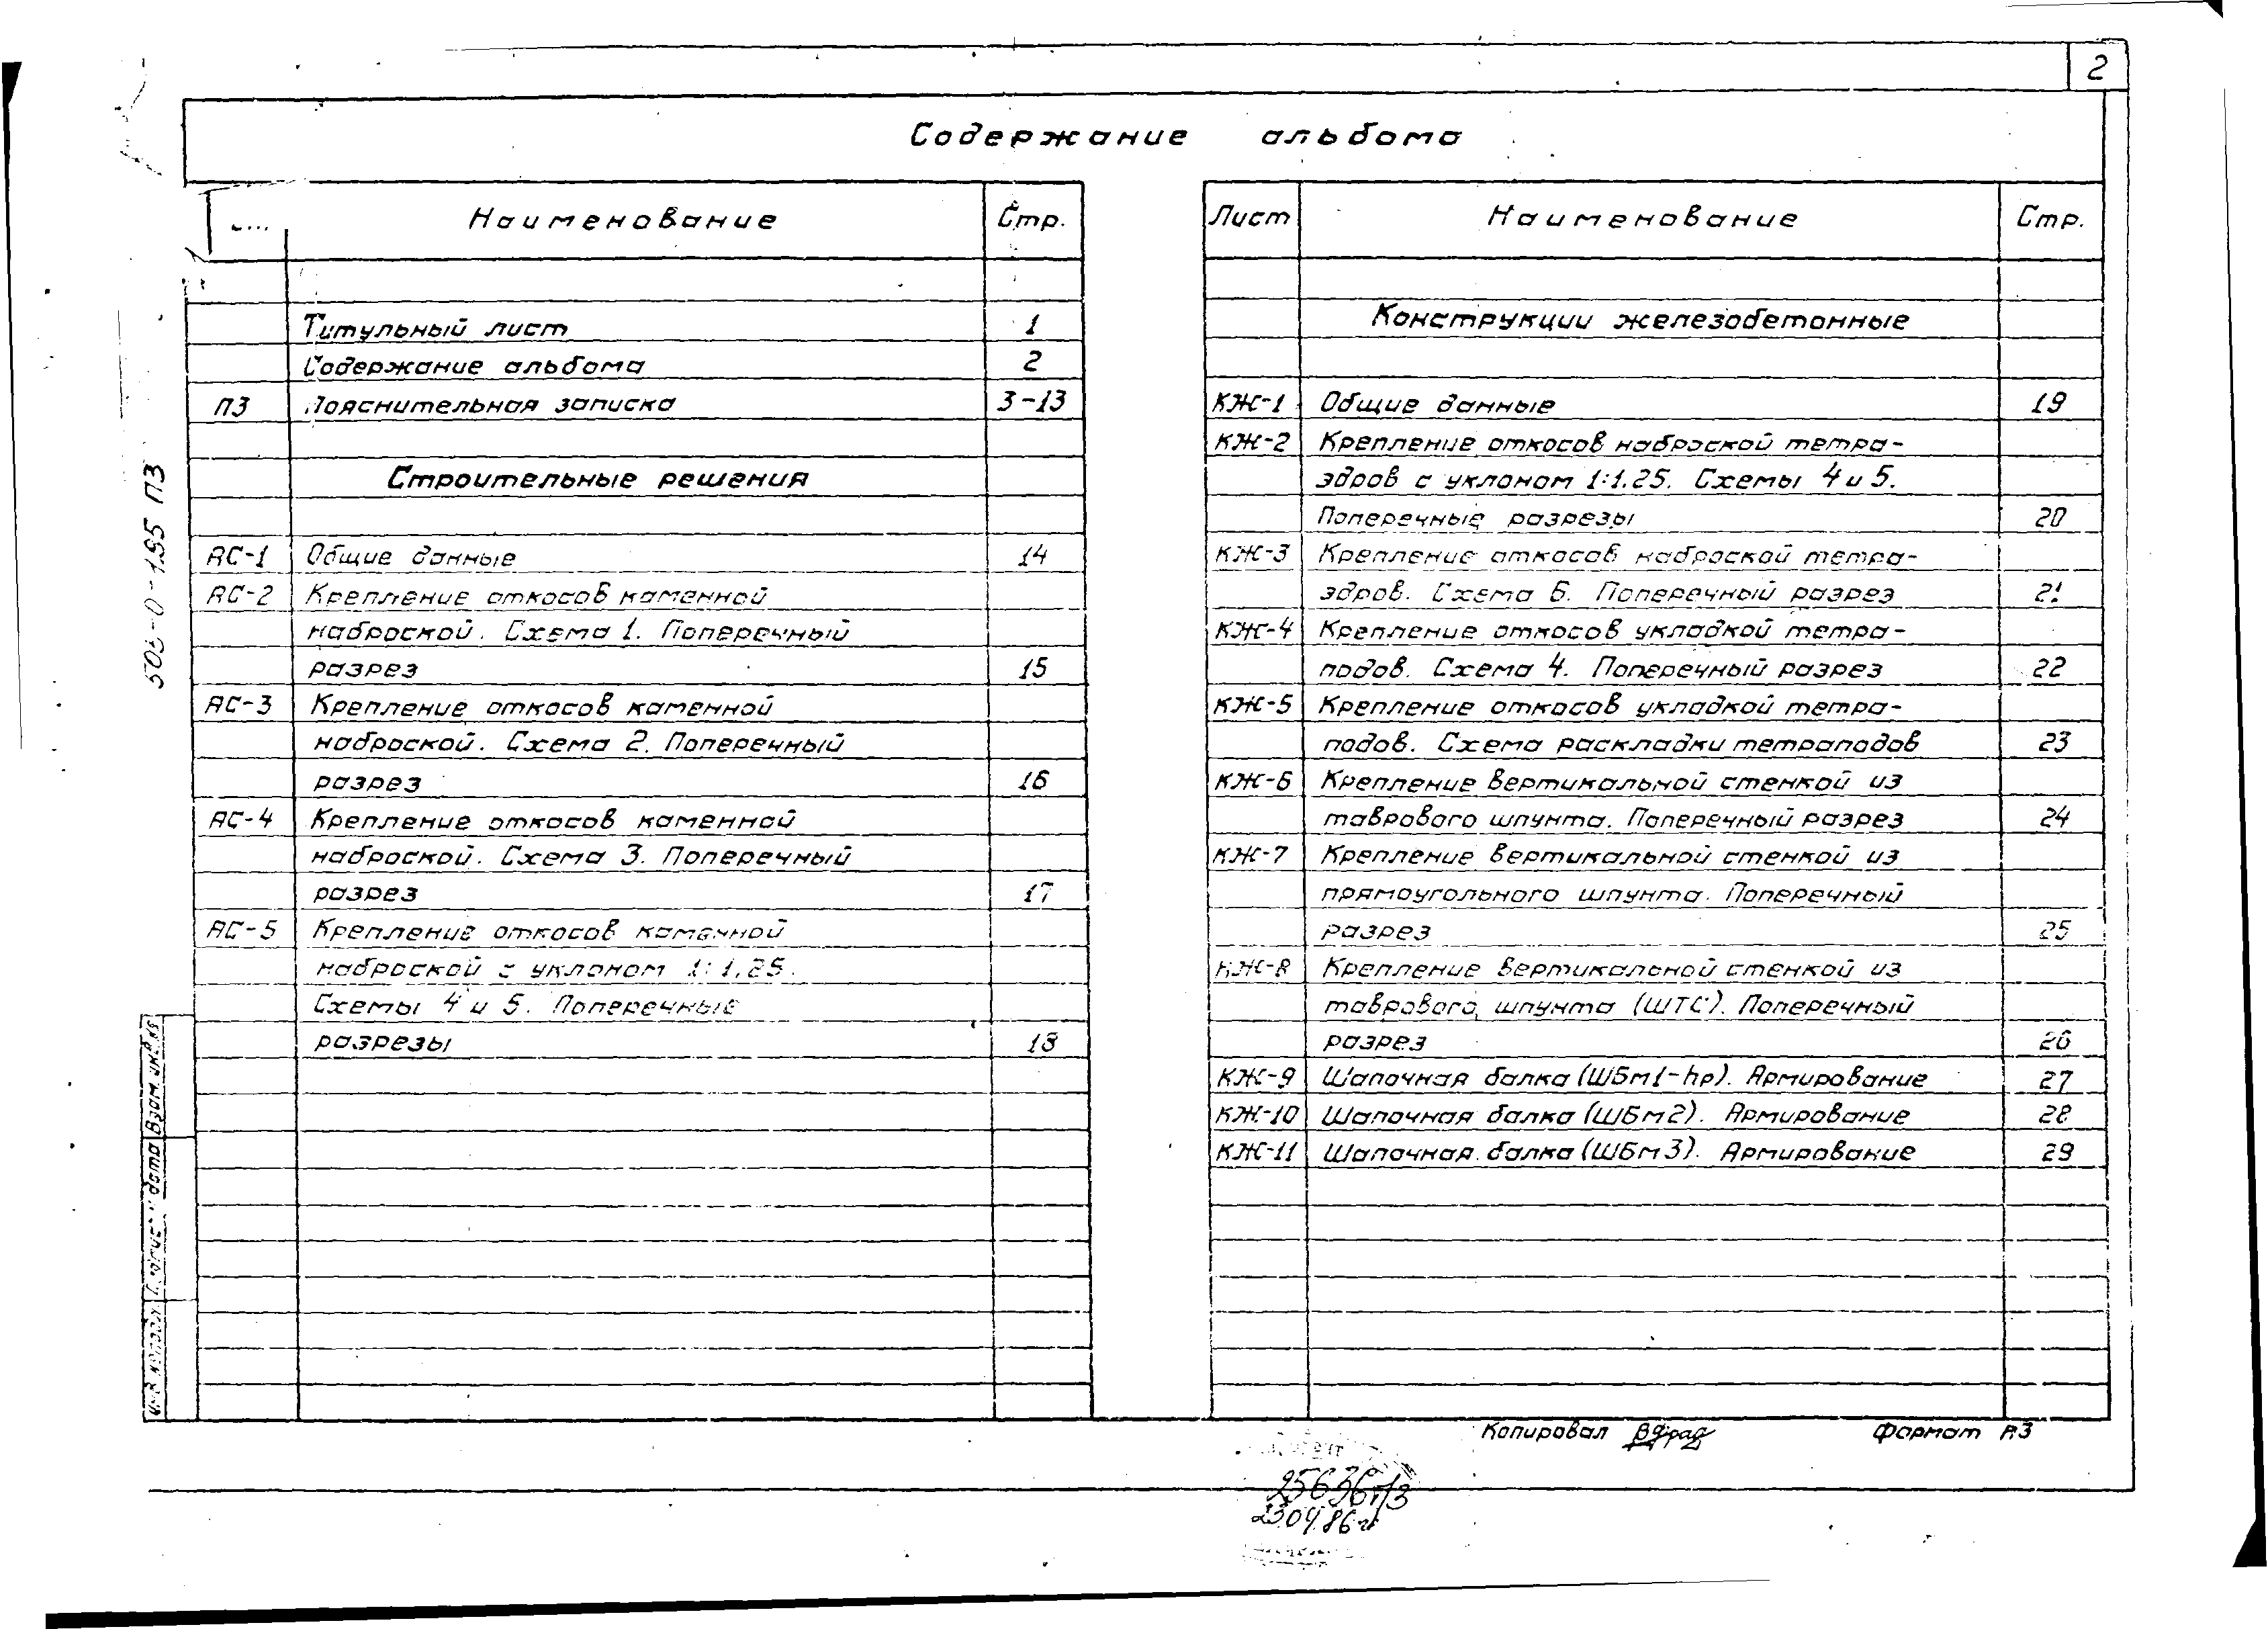 2
Содержание альбома
Наименование Стр.
Титульный лист 1
Содержание альбома 2
ПЗ Пояснительная записка 3-13
Строительные решения
АС-1 Общие данные 14
АС-2 Крепление откосов каменной
наброской. Схема 1. Поперечный
разрез 15
АС-3 Крепление откосов каменной
наброской. Схема 2. Поперечный
разрез 16
АС-4 Крепление откосов каменной
наброской. Схема 3. Поперечный
разрез 17
АС-5 Крепление откосов каменной
наброской с уклоном 1:1,25.
Схемы 4 и 5. Поперечные
разрезы 18
Лист Наименование Стр.
Конструкции железобетонные
КЖ-1 Общие данные 19
КЖ-2 Крепление откосов наброской тетра-
эдров с уклоном 1:1.25. Схемы 4 и 5.
Поперечные разрезы 20
КЖ-3 Крепление откосов наброской тетра-
эдров. Схема 6. Поперечный разрез 21
КЖ-4 Крепление откосов укладкой тетра-
подов. Схема 4. Поперечный разрез 22
КЖ-5 Крепление откосов укладкой тетра-
подов. Схема раскладки тетраподов 23
КЖ-6 Крепление вертикальной стенкой из
таврового шпунта. Поперечный разрез 24
КЖ-7 Крепление вертикальной стенкой из
прямоугольного шпунта. Поперечный
разрез 25
КЖ-8 Крепление вертикальной стенкой из
таврового шпунта (ШТС). Поперечный
разрез 26
КЖ-9 Шапочная балка (ШБм1-hр). Армирование 27
КЖ-10 Шапочная балка (ШБм2). Армирование 28
КЖ-11 Шапочная балка (ШБм3). Армирование 29
503-0-195 ПЗ
Взам. инв.№
дата
Копировал
Формат А3
23.04.86г